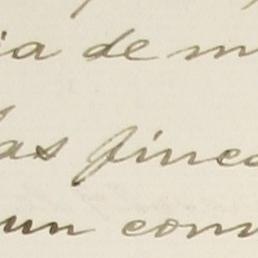 ia de m
las finca
un conv